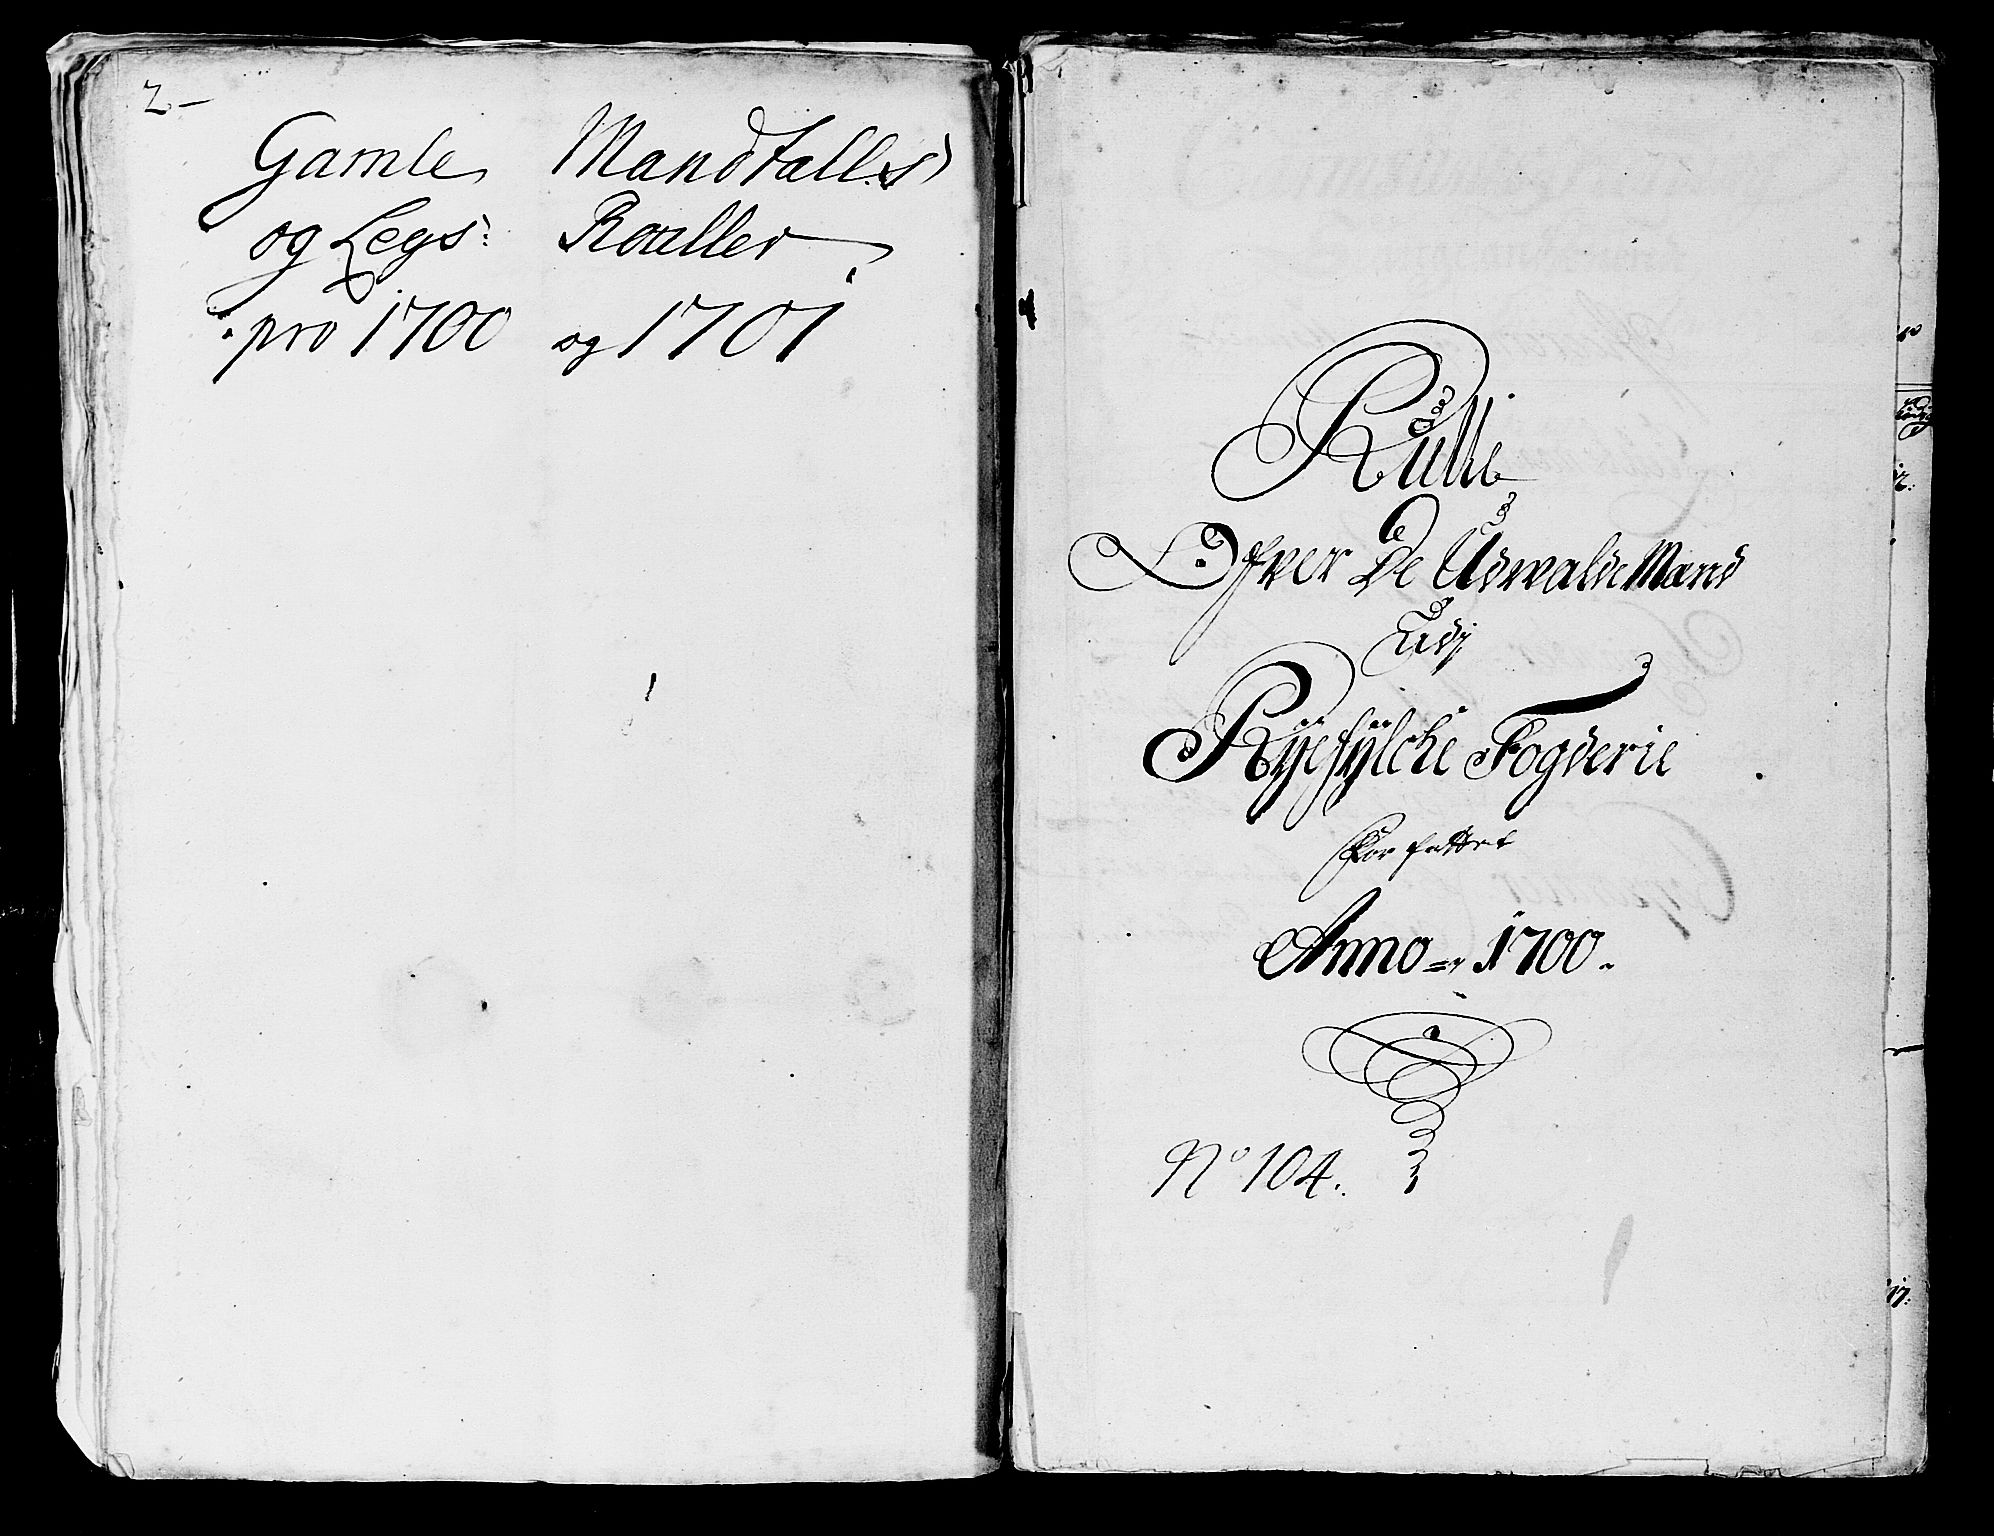 2.-
Gamle Mandtalls
og Legs: Roueller
pro 1700 og 1701
Rulle
Ofver De Udvalde Mænd
Udj
Ryefylche Fogderie
Forfattet
Anno = 1700.
No 104.
17: